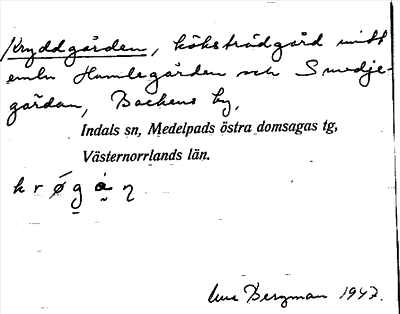 Kryddgården, köksträdgård mitt
emln Humlegården och Smedje-
gårdan, Backens by,
Indals sn, Medelpads östra domsagas tg,
Västernorrlands län.
k r ø g å n
Bergman 1947.